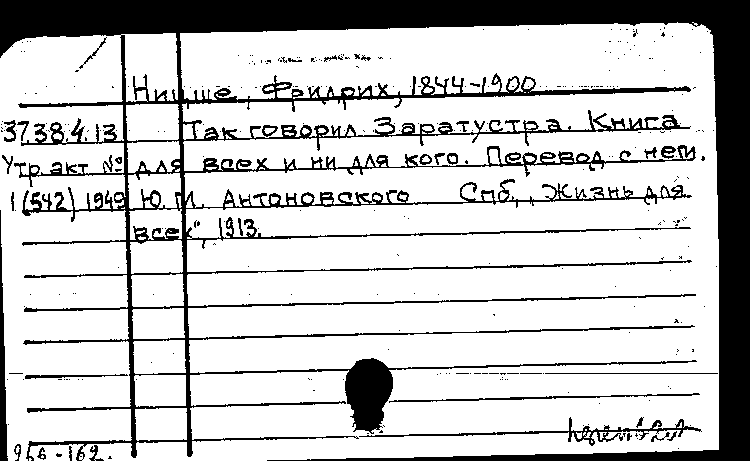 Ницше, Фридрих, 1844-1900
37.38.4.13 Так говорил Заратустра. Книга
Утр. акт № для всех и ни для кого. Перевод с нем.
1(542) 1949 Ю. М. Антоновского Спб, „Жизнь для
всех", 1913.
966-162.